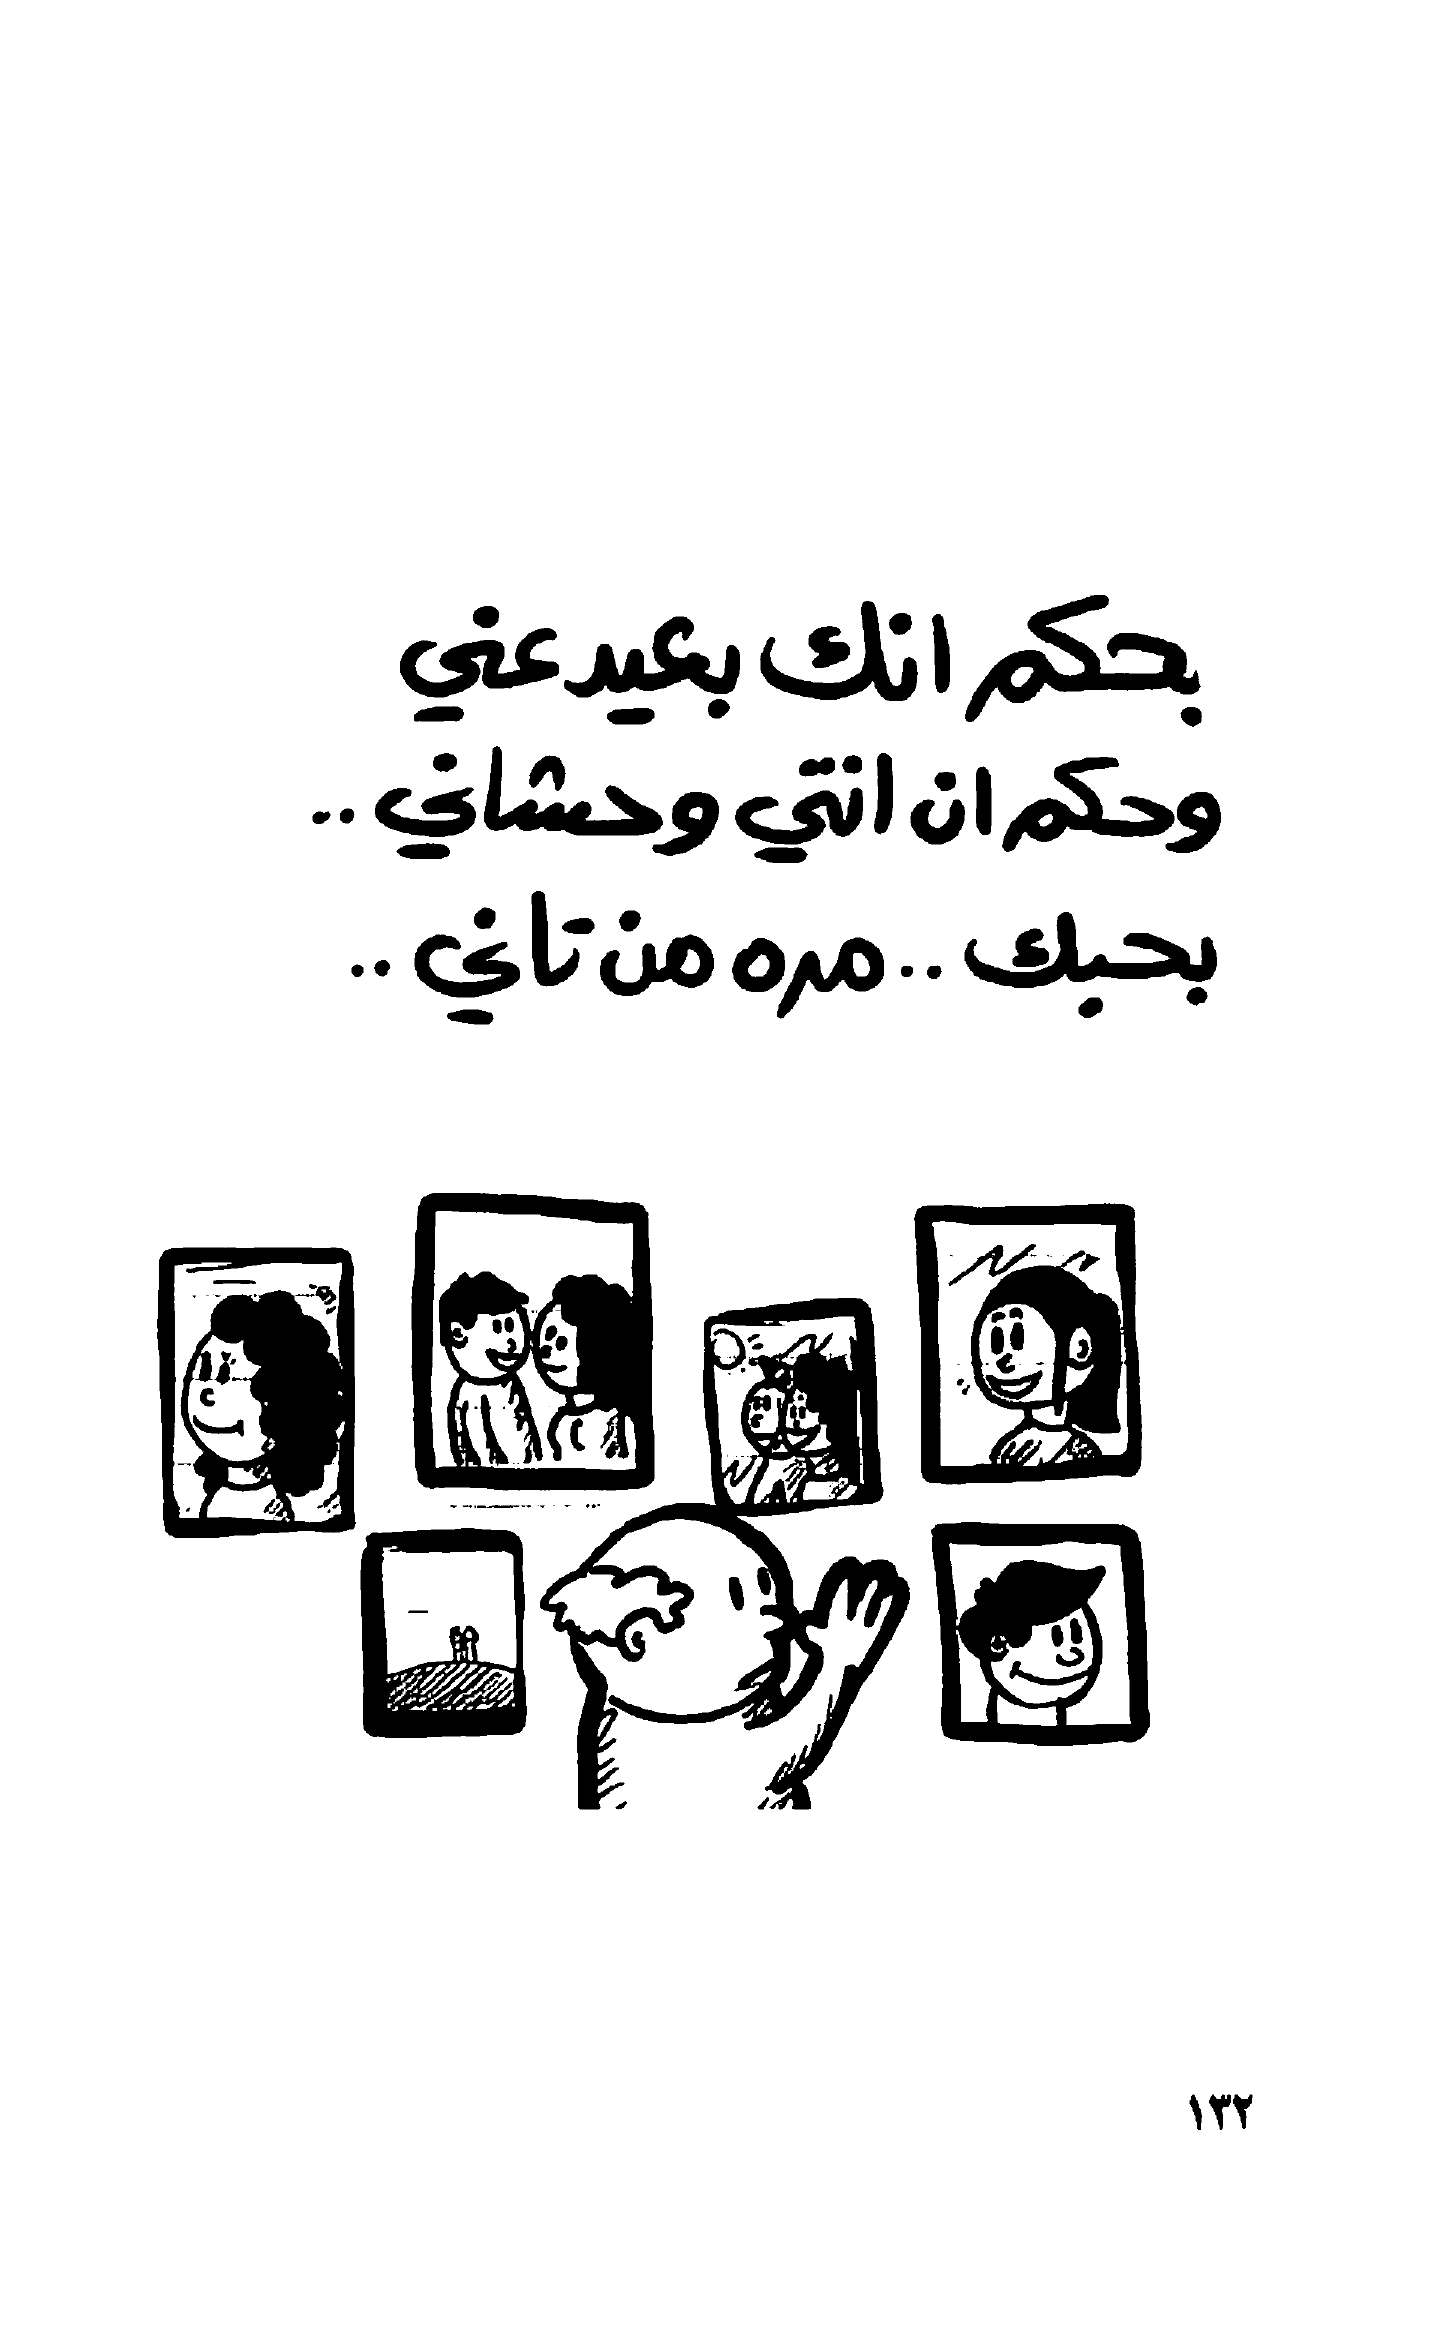 بحكم انك بعيد عني
وحكم ان انتي وحشاني ..
بحبك .. مره من تاني ..
١٣٢